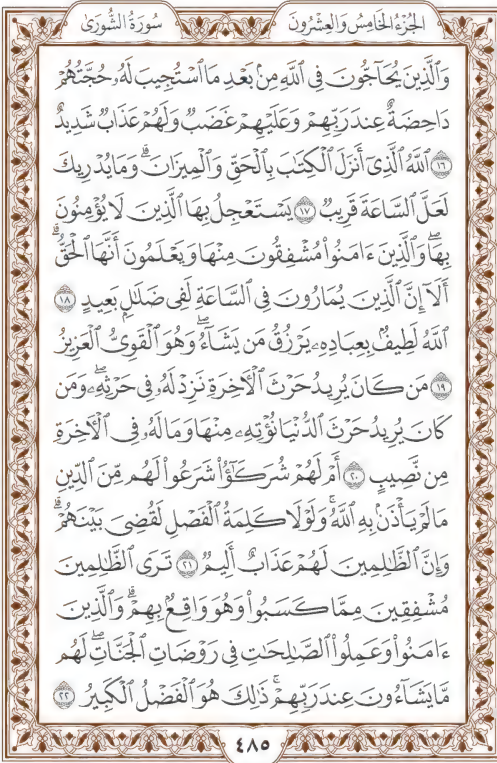 سُورَةُ الشُّورَىٰ
الجُزْءُ الخَامِسُ وَالعِشْرُونَ
وَٱلَّذِينَ يُحَآجُّونَ فِى ٱللَّهِ مِنۢ بَعْدِ مَا ٱسْتُجِيبَ لَهُۥ حُجَّتُهُمْ
دَاحِضَةٌ عِندَ رَبِّهِمْ وَعَلَيْهِمْ غَضَبٌ وَلَهُمْ عَذَابٌ شَدِيدٌ
١٦ ٱللَّهُ ٱلَّذِىٓ أَنزَلَ ٱلْكِتَٰبَ بِٱلْحَقِّ وَٱلْمِيزَانَ ۗ وَمَا يُدْرِيكَ
لَعَلَّ ٱلسَّاعَةَ قَرِيبٌ ١٧ يَسْتَعْجِلُ بِهَا ٱلَّذِينَ لَا يُؤْمِنُونَ
بِهَا ۖ وَٱلَّذِينَ ءَامَنُوا۟ مُشْفِقُونَ مِنْهَا وَيَعْلَمُونَ أَنَّهَا ٱلْحَقُّ ۗ
أَلَآ إِنَّ ٱلَّذِينَ يُمَارُونَ فِى ٱلسَّاعَةِ لَفِى ضَلَٰلٍۭ بَعِيدٍ ١٨
ٱللَّهُ لَطِيفٌۢ بِعِبَادِهِۦ يَرْزُقُ مَن يَشَآءُ ۖ وَهُوَ ٱلْقَوِىُّ ٱلْعَزِيزُ
١٩ مَن كَانَ يُرِيدُ حَرْثَ ٱلْءَاخِرَةِ نَزِدْ لَهُۥ فِى حَرْثِهِۦ ۖ وَمَن
كَانَ يُرِيدُ حَرْثَ ٱلدُّنْيَا نُؤْتِهِۦ مِنْهَا وَمَا لَهُۥ فِى ٱلْءَاخِرَةِ
مِن نَّصِيبٍ ٢٠ أَمْ لَهُمْ شُرَكَٰٓؤُا۟ شَرَعُوا۟ لَهُم مِّنَ ٱلدِّينِ
مَا لَمْ يَأْذَنۢ بِهِ ٱللَّهُ ۚ وَلَوْلَا كَلِمَةُ ٱلْفَصْلِ لَقُضِىَ بَيْنَهُمْ ۗ
وَإِنَّ ٱلظَّٰلِمِينَ لَهُمْ عَذَابٌ أَلِيمٌ ٢١ تَرَى ٱلظَّٰلِمِينَ
مُشْفِقِينَ مِمَّا كَسَبُوا۟ وَهُوَ وَاقِعٌۢ بِهِمْ ۗ وَٱلَّذِينَ
ءَامَنُوا۟ وَعَمِلُوا۟ ٱلصَّٰلِحَٰتِ فِى رَوْضَاتِ ٱلْجَنَّاتِ ۖ لَهُم
مَّا يَشَآءُونَ عِندَ رَبِّهِمْ ۚ ذَٰلِكَ هُوَ ٱلْفَضْلُ ٱلْكَبِيرُ ٢٢
٤٨٥